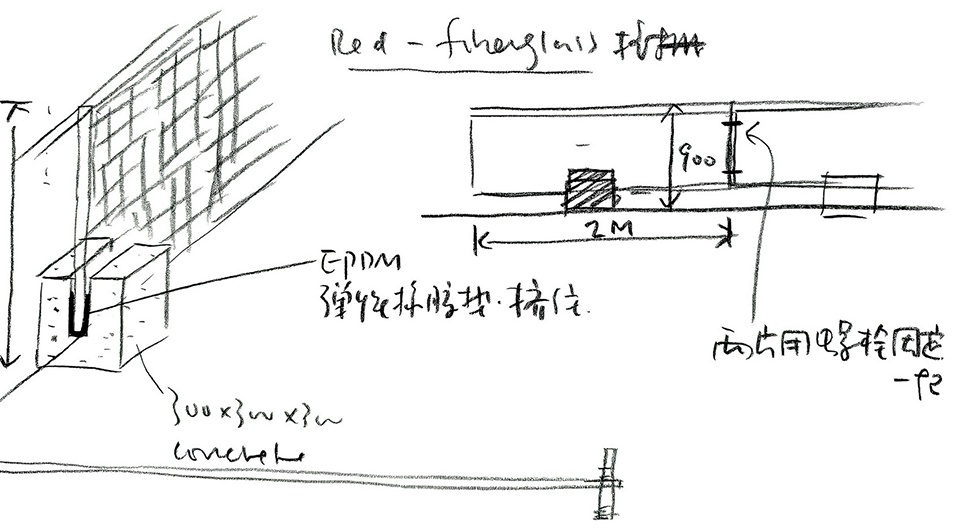 Red - fiberglass
900
2M
EPDM
弹性橡胶垫·挤住.
两片用螺栓固定
一起
300x300x300
concrete